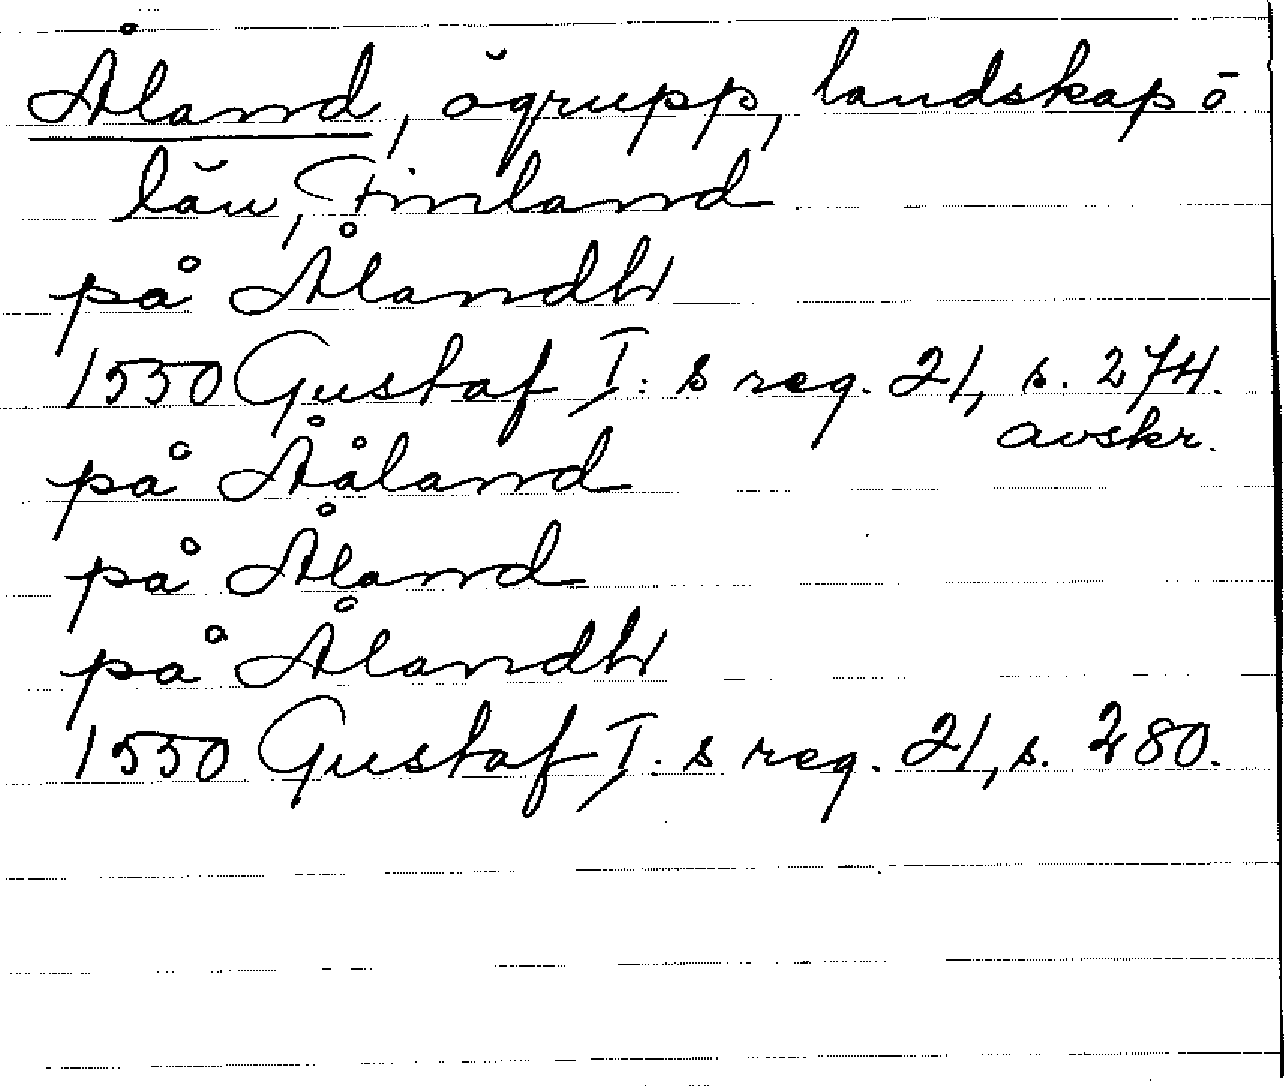 Åland, ögrupp, landskap o
län, Finland
på Ålandh
1550 Gustaf I:s reg. 21, s. 274.
avskr.
på Ååland
på Åland
på Ålandh
1550 Gustaf I:s reg. 21, s. 280.